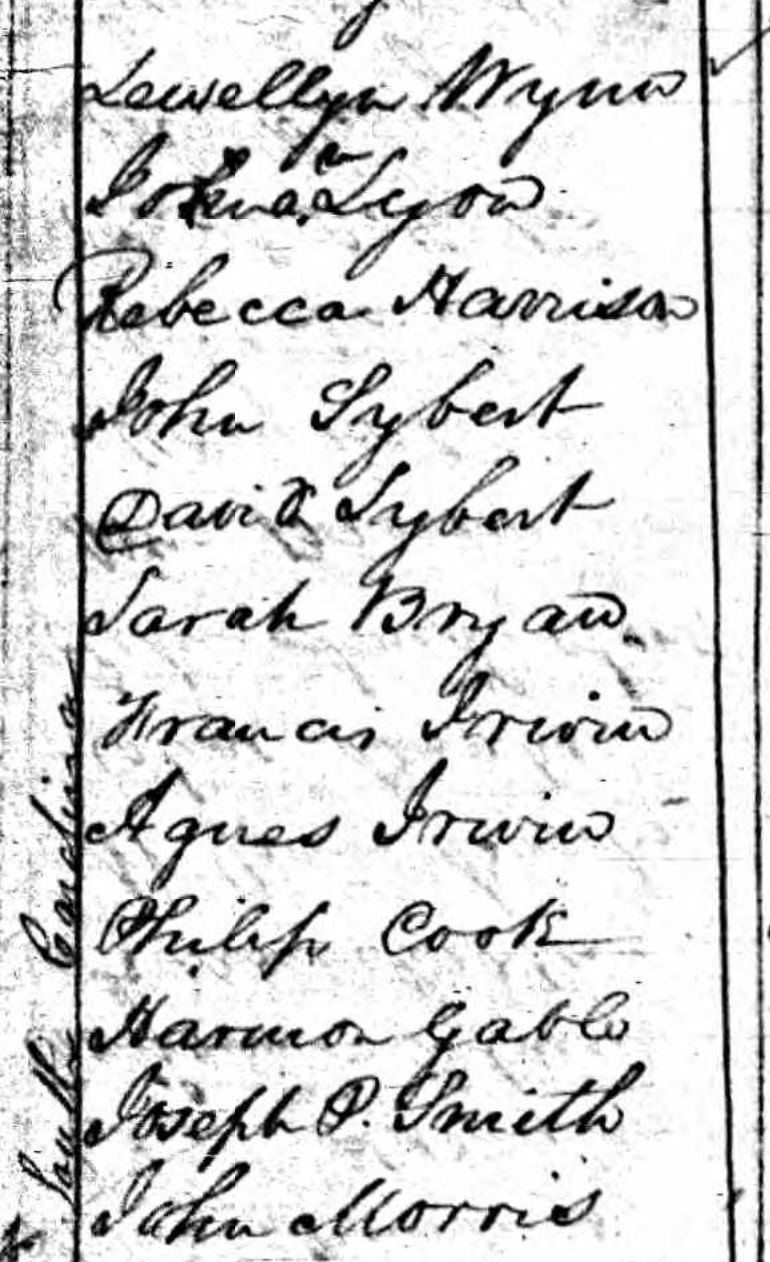 Lewellyn Wynn
Lyon
Rebecca Harrison
John Sybert
David Sybert
Sarah Bryan
Francis Irwin
Agnes Irwin
Philip Cook
Harmon Gable
Joseph P. Smith
John Morris
South Carolina